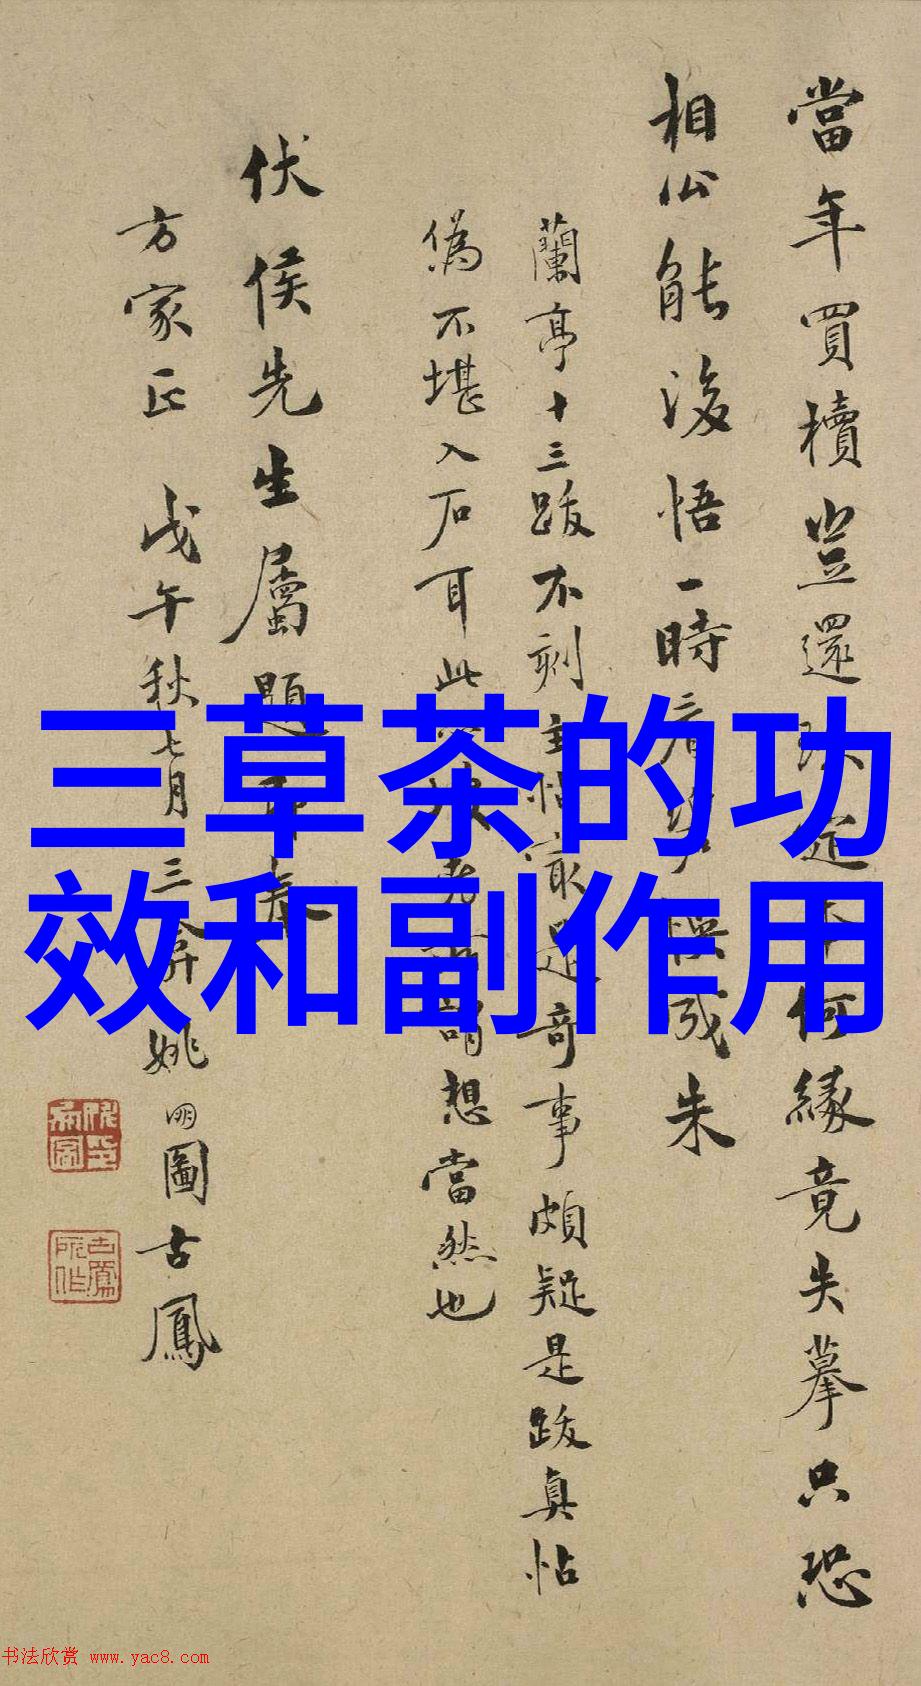 當年買櫝豈還
何緣竟失摹只恐
相公能後悟一時看
成朱
蘭亭十三跋不刻
是奇事頗疑是跋真帖
偽不堪入石耳此
謂想當然也
伏侯先生屬題
方家正 戊午秋七月三
姚 圖古鳳
三草茶的功
效和副作用
书法欣赏 www.yac8.com